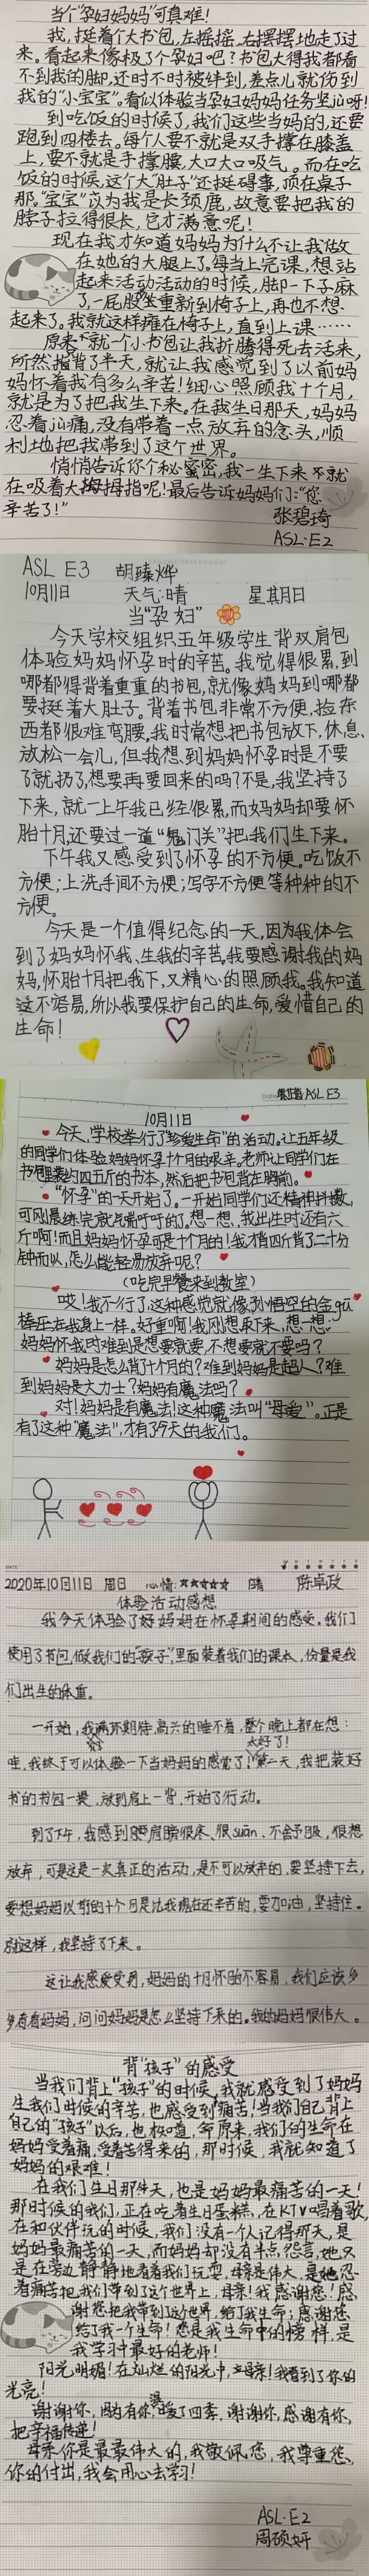 当个"孕妇妈妈"可真难!
我,挺着个大书包,左摇摇,右摆摆地走了过
来。看起来像极了个孕妇吧?书包大得我都看
不到我的脚,还时不时被绊到,差点儿就伤到
我的"小宝宝"。看似体验当孕妇妈妈任务坚jù呀!
到吃饭的时候了,我们这些当妈的,还要
跑到四楼去。每个人要不就是双手撑在膝盖
上,要不就是手撑腰,大口大口吸气。而在吃
饭的时候,这个大"肚子"还挺碍事,顶在桌子
那,"宝宝"以为我是长颈鹿,故意要把我的
脖子拉得很长,它才满意呢!
现在我才知道妈妈为什么不让我做
在她的大腿上了。每当上完课,想站
起来活动活动的时候,脚一下子麻
了,一屁股坐重新到椅子上,再也不想
起来了。我就这样瘫在椅子上,直到上课……
原来,就一个小书包让我折腾得死去活来,
所然指背了半天,就让我感觉到了以前妈
妈怀着我有多么辛苦!细心照顾我十个月,
就是为了把我生下来。在我生日那天,妈妈
忍着jù痛,没有带着一点放弃的念头,顺
利地把我带到了这个世界。
悄悄告诉你个秘密,我一生下来就
在吸着大拇指呢!最后告诉妈妈们:"您
辛苦了!"
张碧琦
ASL·E2
ASL E3 胡臻烨
10月11日 天气:晴 星期日
当"孕妇"
今天学校组织五年级学生背双肩包
体验妈妈怀孕时的辛苦。我觉得很累,到
哪都得背着重重的书包,就像妈妈到哪都
要挺着大肚子。背着书包非常不方便,捡东
西都很难弯腰。我时常想把书包放下,休息、
放松一会儿,但我想到妈妈怀孕时是不要
了就扔了,想要再要回来的吗?不是,我坚持了
下来,就一上午我已经很累,而妈妈却要怀
胎十月,还要过一道"鬼门关"把我们生下来。
下午我又感受到了怀孕的不方便。吃饭不
方便;上洗手间不方便;写字不方便等种种的不
方便。
今天是一个值得纪念的一天,因为我体会
到了妈妈怀我、生我的辛苦。我要感谢我的妈
妈,怀胎十月把我下,又精心的照顾我。我知道
这不容易,所以我要保护自己的生命,爱惜自己的
生命!
ASL E3
10月11日
今天,学校举行了"珍爱生命"的活动。让五年级
的同学们体验妈妈怀孕十个月的艰辛。老师让同学们在
书包里装约四五斤的书本,然后把书包背在胸前。
"怀孕"的一天开始了。一开始同学们还精神抖擞,
可刚晨练完就气喘吁吁的。想一想,我出生时还有六
斤啊!而且妈妈怀孕可是十个月的!我才四斤背了二十分
钟而以,怎么能轻易放弃呢?
(吃完早餐来到教室)
哎!我不行了,这种感觉就像孙悟空的金gū
棒压在我身上一样。好重啊!我刚想取下来,想一想:
妈妈怀我时难到是想要就要,不想要就不要吗?
妈妈是怎么背了十个月的?难到妈妈是超人?难
到妈妈是大力士?妈妈有魔法吗?
对!妈妈是有魔法!这种魔法叫"母爱"。正是
有了这种"魔法",才有了今天的我们。
2020年10月11日 周日 心情:★★★★★ 晴 陈卓政
体验活动感想
我今天体验了好妈妈在怀孕期间的感受。我们
使用了书包,做我们的"孩子",里面装着我们的课本,份量是我
们出生的体重。
一开始,我满怀期待,高兴的睡不着,整个晚上都在想:
太好了!
哇,我终于可以体验一下当妈妈的感觉了!第二天,我把装好
书的书包一提,放到肩上一背,开始了行动。
到了下午,我感到腰肩膀很床、很suān、不舍予服,很想
放弃,可是这是一次真正的活动,是不可以放弃的,要坚持下去,
要想妈妈以前的十个月是比我现在还辛苦的,要加油,坚持住。
就这样,我坚持了下来。
这让我感爱受到,妈妈的十月怀胎不容易,我们应该多
多看看妈妈,问问妈妈是怎么坚持下来的。我的妈妈很伟大。
背"孩子"的感受
当我们背上"孩子"的时候,我就感受到了妈妈
生我们时候的辛苦,也感受到痛苦!当我们自己背上
自己的"孩子"以后,也极知道,命原来,我们的生命在
妈妈受着痛,受着苦得来的,那时候,我就知道了
妈妈的艰难!
在我们生日那天,也是妈妈最痛苦的一天!
那时候的我们,正在吃着生日蛋糕,在KTV唱着歌,
在和伙伴玩的时候,我们没有一个人记得那天,是
妈妈最痛苦的一天,而妈妈却没有半点怨言,她只
是在旁边静静地看着我们玩耍,母亲是伟大,是她忍
着痛苦把我们带到了这个世界上,母亲!我感谢您!感
谢您把我带到这个世界,给了我生命;感谢您
给了我一个生命!您是我生命中的榜样,是
我学习中最好的老师!
阳光明媚!在灿烂的阳光中,母亲!我看到了你的
光亮!
谢谢你,因为有你,温暖了四季,谢谢你,感谢有你,
把幸福传递!
母亲你是最最伟大的,我敬佩您,我尊重您,
你的付出,我会用心去学习!
ASL·E2
周硕妍